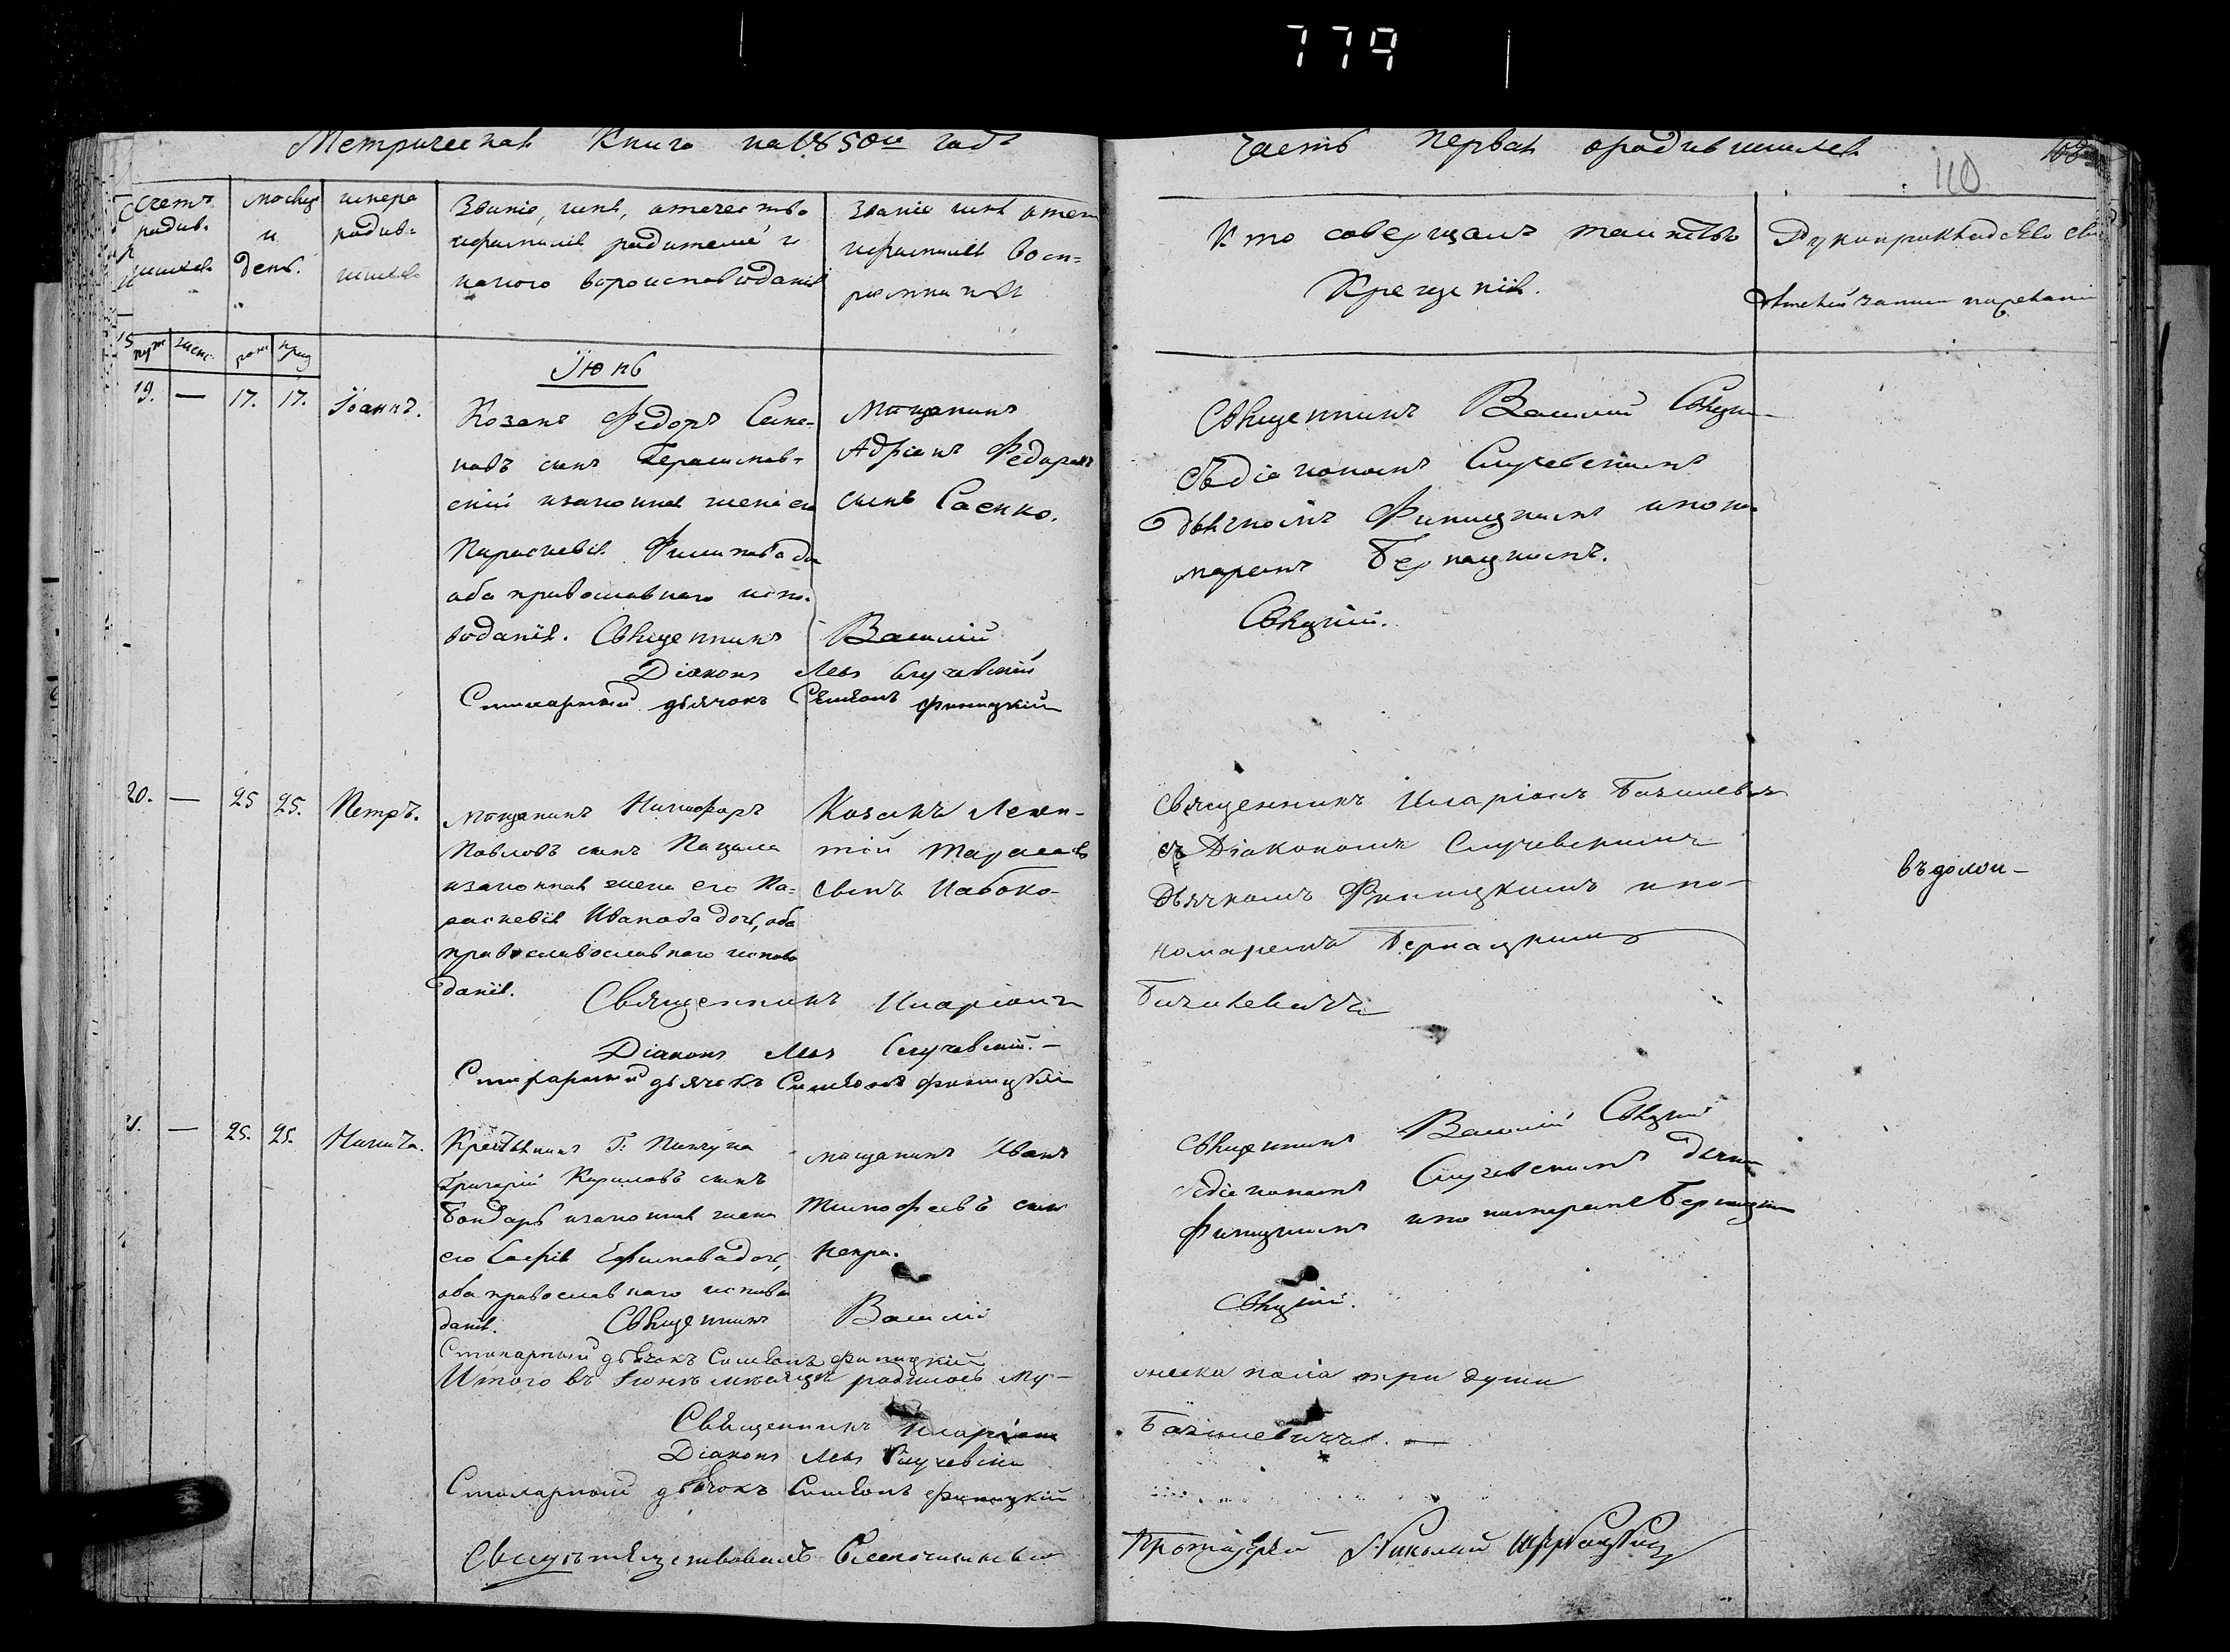 779
Метрическая Книга на 1850й годъ
Часть первая о родившихся
110
103
Счетъ родив-шихся
Месяцъ и день.
имера родив-шихся
Званіе, имя, отечество
и фамилія родителей и
какого вероисповеданія
Званіе имя отеч
и фамилія восп-
рiемниковъ
Кто совершалъ таинство
Крещенія.
Рукоприкладство сви
детелей записи по желанію
муж женс рож крещ
Іюнь
19. — 17. 17. Іоаннъ.
Козакъ Федоръ Симо-
новъ сынъ Герасимов-
скій и законная жена его
Параскевія Филипова до
оба православнаго испо-
веданія. Священникъ Василій
Діаконъ Левъ Случевскій
Стихарный дьячокъ Симеонъ Финицкій
Мещанинъ
Адріанъ Федоровъ
сынъ Саенко.
Священникъ Василій Свецкій
съ діакономъ Случевскимъ
дьячкомъ Финицкимъ и поно-
маремъ Бернацкимъ.
Свецкій.
20. — 25 25. Петръ.
Мещанинъ Никифоръ
Павловъ сынъ Пацала
и законная жена его Па-
раскевія Иванова дочь, оба
православославнаго испове
данія. Священникъ Иларіонъ
Діаконъ Левъ Случевскій. —
Стихарный дьячекъ Симеонъ Финицкій
Козакъ Леон-
тій Тарасов
сынъ Набоко-
Священникъ Иларіонъ Базилевъ
съ Діакономъ Случевскимъ
Дьячкомъ Финицкимъ и по-
номаремъ Бернацкимъ
Базилевичъ
21. — 25. 25. Никита.
Крестьянинъ Г: Пинчука
Григорій Кириловъ сынъ
Бондарь и законная жена
его Софія Ефимова дочь,
оба православнаго испове
данія. Священникъ Василій
Стихарный дьячокъ Симеонъ Финицкій
мещанинъ Иванъ
Тимофеевъ сын
Некра.
Священникъ Василій Свецкій
съ діакономъ Случевскимъ дьячк
Финицкимъ и пономаремъ Бернацким
Свецкій.
Итого въ Іюнъ месяцъ родилось му-
жеска пола три души
Священникъ Иларіонъ
Базилевичъ. —
Діаконъ Левъ Случевскій
Стихарный дьячокъ Симеонъ Финицкій
Свидътельствовалъ Благочинный
Протоіерей Николай